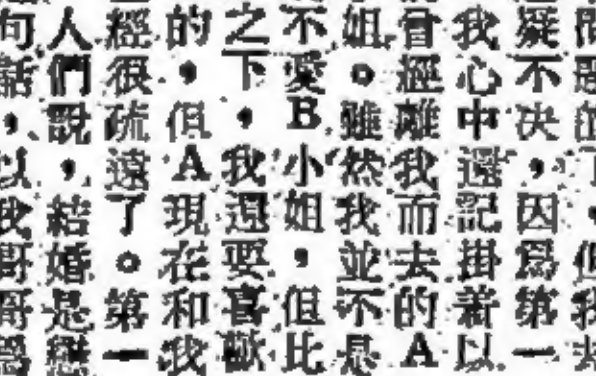 疑不决，因爲第一
我心中還記掛着以
曾經離我而去的A
姐。雖然我並不是
不愛B小姐，但比
之下，我還要喜歡
的，但A現在和我
經很疏遠了。第一
人們說，結婚是戀
句話，以我哥哥爲